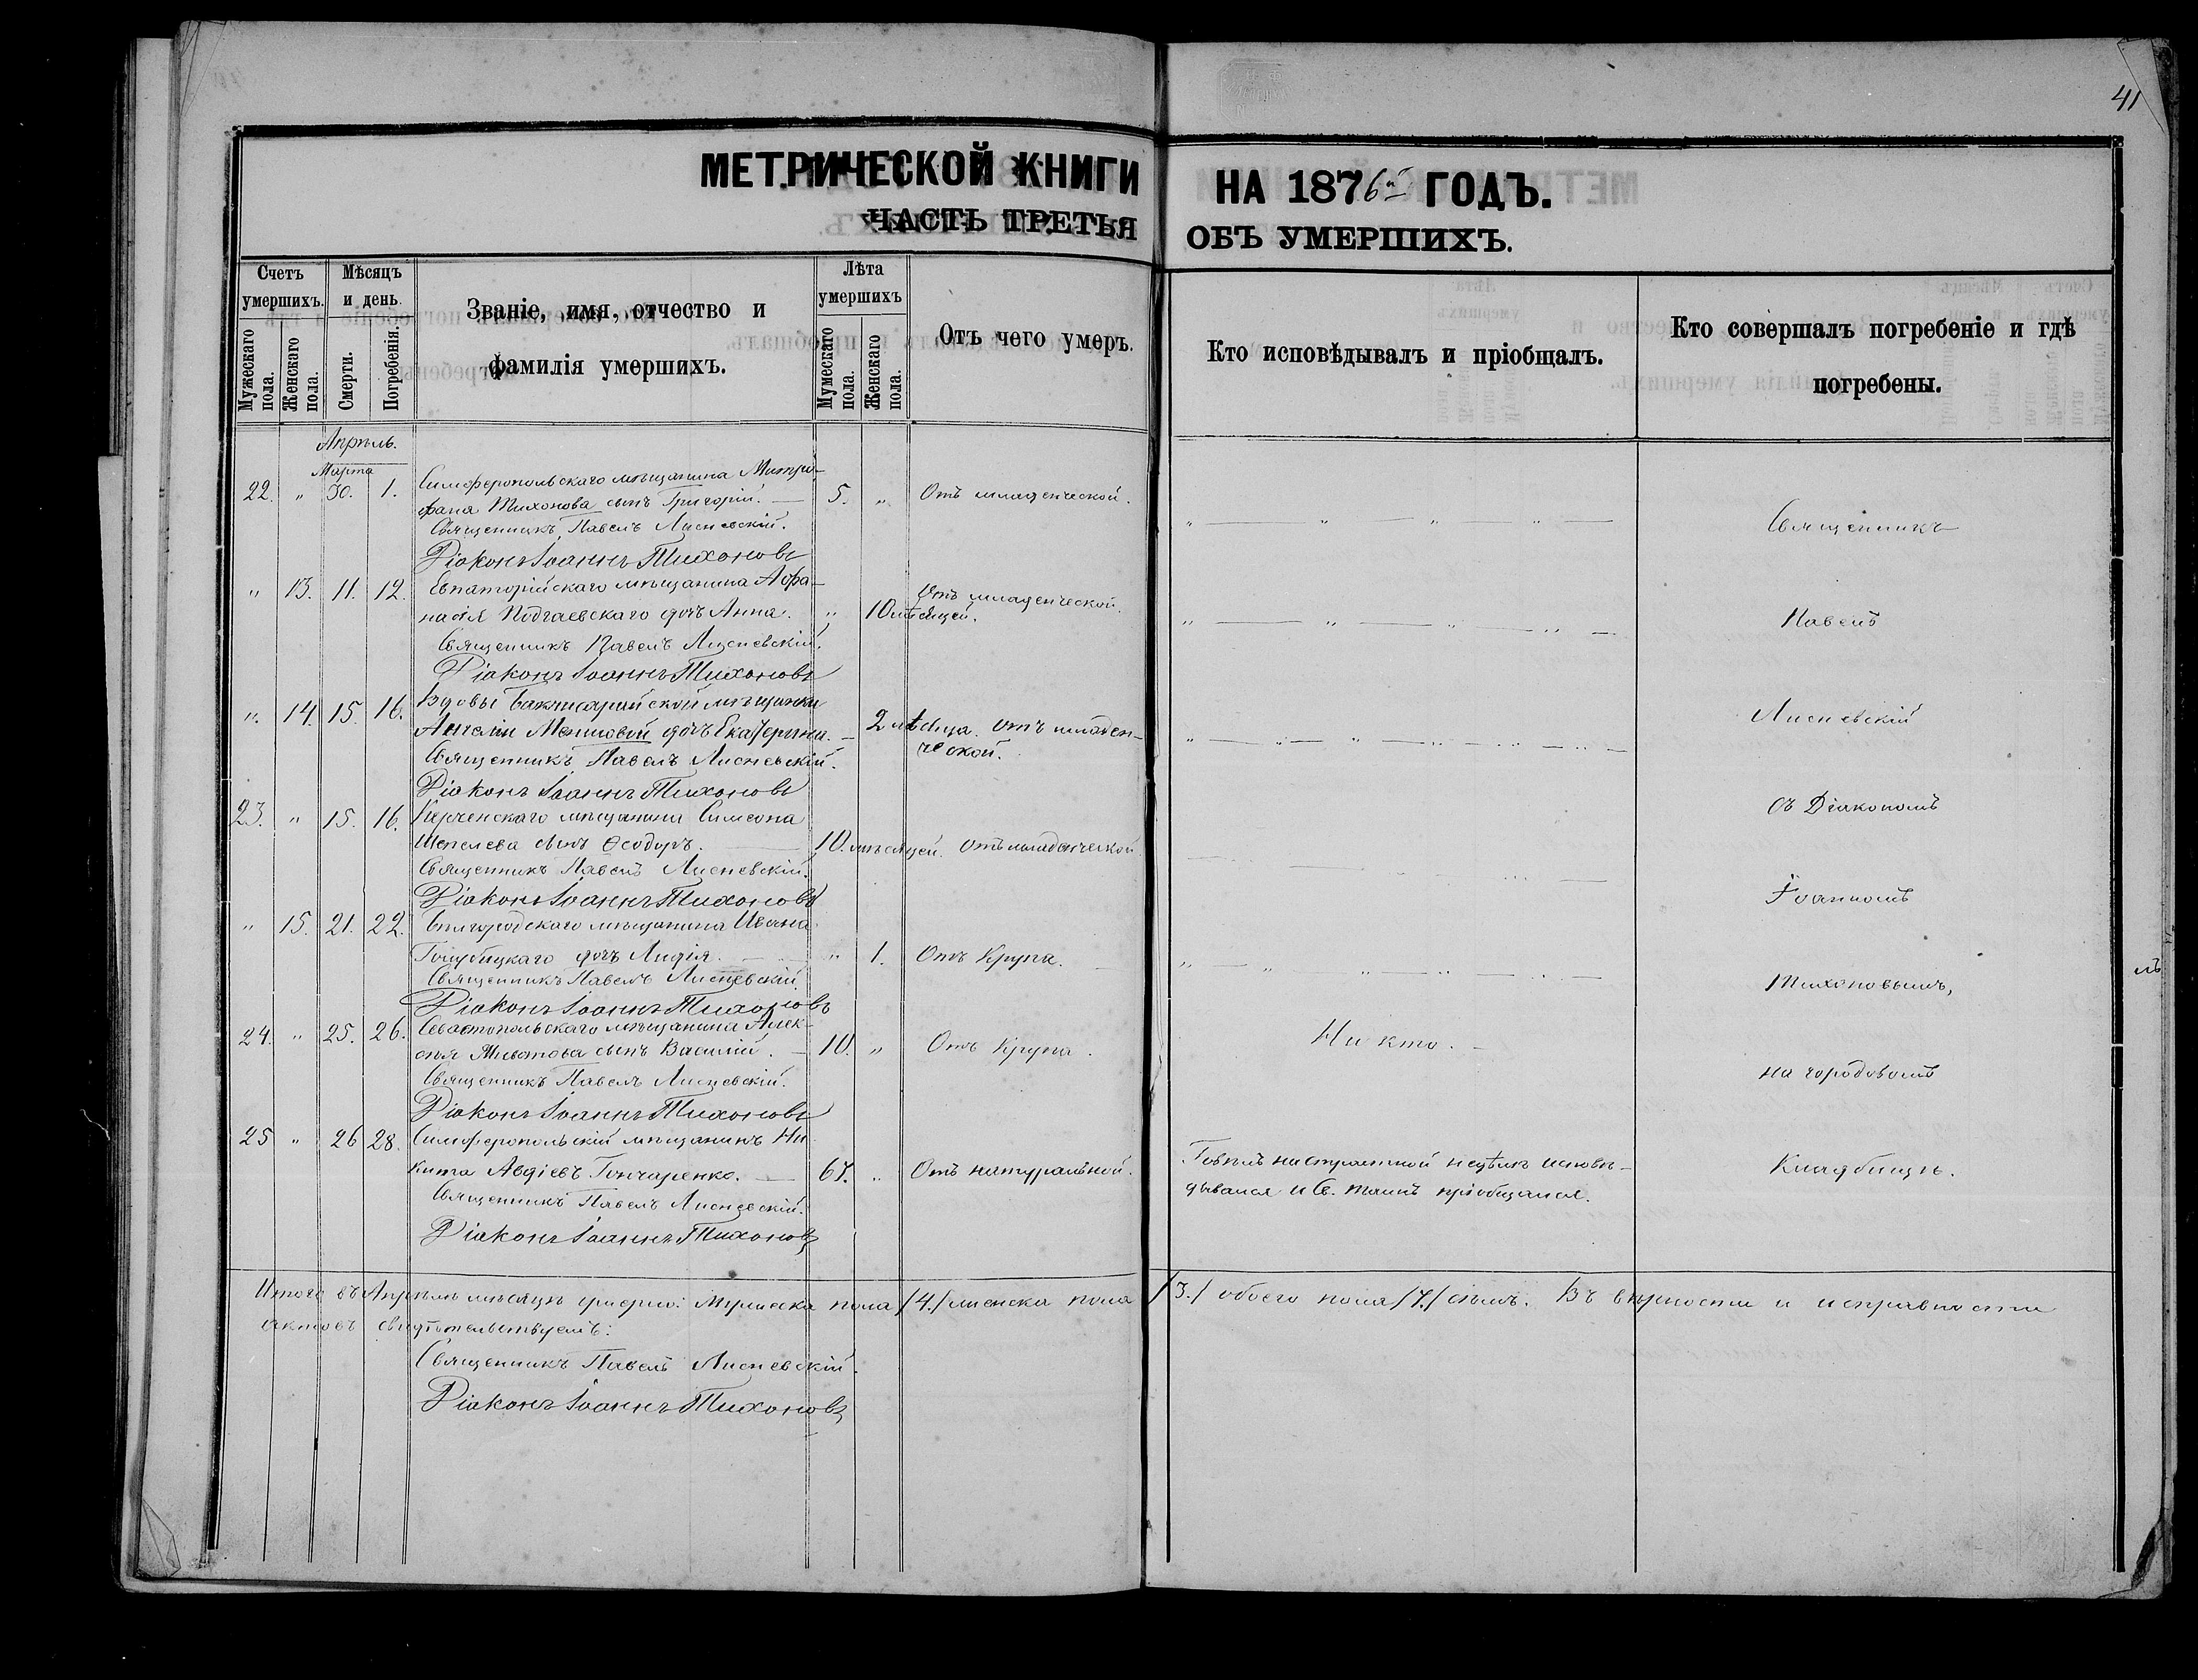 41
МЕТРИЧЕСКОЙ КНИГИ НА 1876й ГОДЪ.
ЧАСТЬ ТРЕТЬЯ ОБЪ УМЕРШИХЪ.
Счетъ умершихъ.
Мужескаго пола.
Женскаго пола.
Мѣсяцъ и день.
Смерти.
Погребенія.
Званіе, имя, отчество и
фамилія умершихъ.
Лѣта умершихъ
Мужескаго пола.
Женскаго пола.
Отъ чего умеръ.
Кто исповѣдывалъ и пріобщалъ.
Кто совершалъ погребеніе и гдѣ
погребены.
Апрѣль.
Марта
22. " 30. 1. Симферопольскаго мѣщанина Митро-
фана Тихонова сынъ Григорій. 5. " Отъ младенческой.
Священникъ Павелъ Лисневскій.
Діаконъ Іоаннъ Тихоновъ
" 13. 11. 12. Евпаторійскаго мѣщанина Афа-
насія Подгаевскаго дочь Анна. " 10 мѣсяцей. Отъ младенческой.
Священникъ Павелъ Лисневскій.
Діаконъ Іоаннъ Тихоновъ
" 14. 15. 16. Вдовы Бакчисарайской мѣщанки
дочь Екатерина. 2 мѣсяца. Отъ младен-
ческой.
Священникъ Павелъ Лисневскій.
Діаконъ Іоаннъ Тихоновъ
23. " 15. 16. Керченскаго мѣщанина Симеона
Шепелева сынъ Ѳеодоръ. 10. мѣсяцей. Отъ младенческой
Священникъ Павелъ Лисневскій.
Діаконъ Іоаннъ Тихоновъ
" 15. 21. 22. Бѣлгородскаго мѣщанина Ивана
Голубицкаго дочь Лидія. " 1. Отъ Крупа.
Священникъ Павелъ Лисневскій.
Діаконъ Іоаннъ Тихоновъ
24. " 25. 26. Севастопольскаго мѣщанина Алек-
сѣя сынъ Василій. 10. " Отъ Крупа. Ни кто.
Священникъ Павелъ Лисневскій.
Діаконъ Іоаннъ Тихоновъ
25 " 26 28. Симферопольскій мѣщанинъ Ни-
кита Авдіевъ Гончаренко. 67. " Отъ натуральной.
Священникъ Павелъ Лисневскій.
Діаконъ Іоаннъ Тихоновъ
Говѣлъ на страстной недѣлѣ исповѣ-
дывался и Св. таинъ пріобщался.
Священникъ
Павелъ
Лисневскій
съ Діакономъ
Іоанномъ
Тихоновымъ,
на городовомъ
Кладбищѣ.
Итого въ Апрѣлѣ мѣсяцѣ умерло: мужеска пола /4./ женска пола /3./ обоего пола /7./ семь. Въ вѣрности и исправности
актовъ свидѣтельствуемъ:
Священникъ Павелъ Лисневскій.
Діаконъ Іоаннъ Тихоновъ